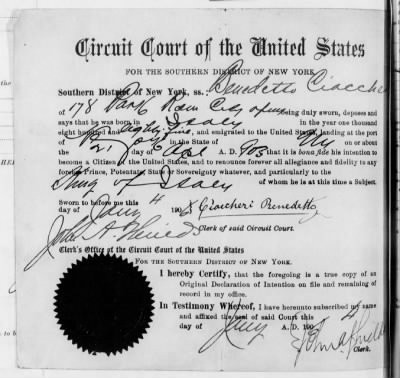 Circuit Court of the United States
FOR THE SOUTHERN DISTRICT OF NEW YORK
Southern District of New York, ss.: Benedetto Cioccheri
of 178 Park Row City being duly sworn, deposes and
says that he was born in Italy in the year one thousand
eight hundred and Eighty five, and emigrated to the United States, landing at the port
of NY in the State of NY on or about
the 21 day of A. D. 1905 that it is bona fide his intention to
become a Citizen of the United States, and to renounce forever all allegiance and fidelity to any
foreign Prince, Potentate, State or Sovereignty whatever, and particularly to the
King of Italy of whom he is at this time a Subject.
Sworn to before me this
day of Jany 4 190 Cioccheri Benedetto
John A Shields Clerk of said Circuit Court.
Clerk's Office of the Circuit Court of the United States
FOR THE SOUTHERN DISTRICT OF NEW YORK.
I hereby Certify, that the foregoing is a true copy of an
Original Declaration of Intention on file and remaining of
record in my office.
In Testimony Whereof, I have hereunto subscribed my name
and affixed the seal of said Court this 4
day of Jany A. D. 190
John A Shields
Clerk.